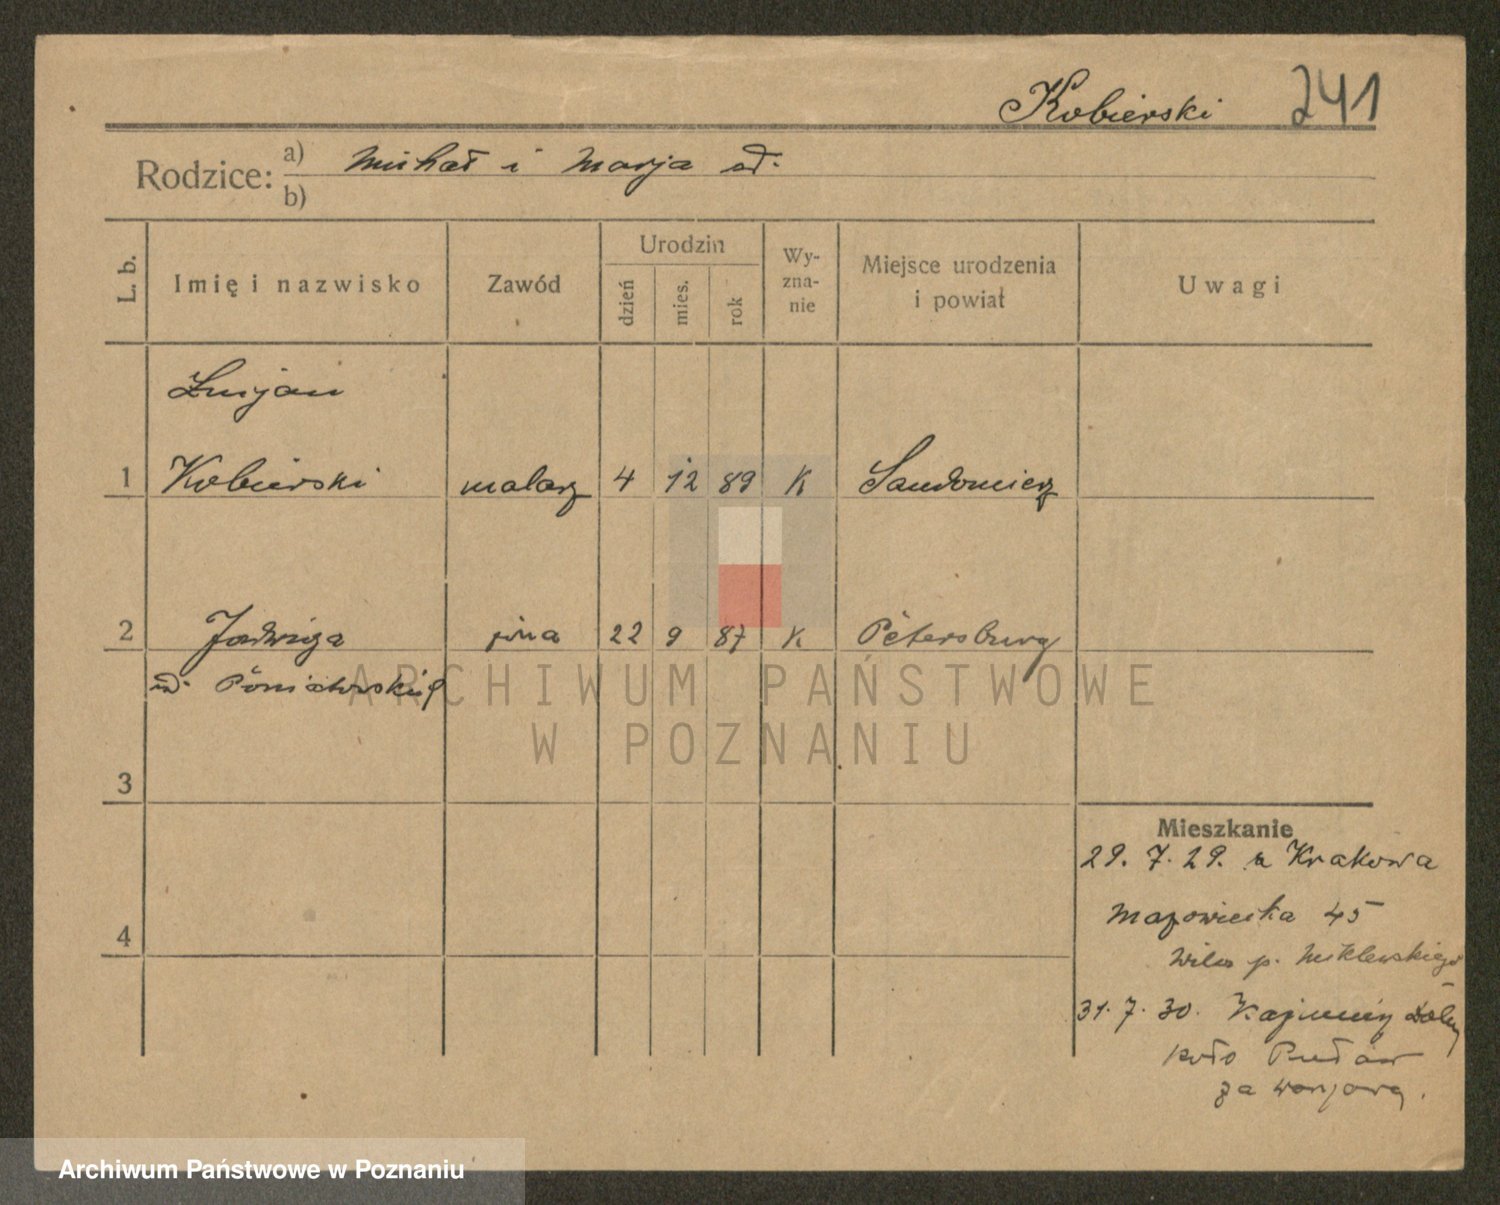 Kobierski 241
Rodzice: a) Michał i Marja od.
b)
L. b. Imię i nazwisko Zawód Urodzin dzień mies. rok Wy-zna-nie Miejsce urodzenia i powiat Uwagi
Lucjan
1 Kobierski malarz 4 12 89 K Sandomierz
2 Jadwiga żona 22 9 87 K Petersburg
od. Poniatowskich
3
Mieszkanie
29. 7. 29. z Krakowa
4
Mazowiecka 45
Willa p.
31. 7. 30. Kazimierz Dolny
koło Puław
za
ARCHIWUM PAŃSTWOWE
W POZNANIU
Archiwum Państwowe w Poznaniu